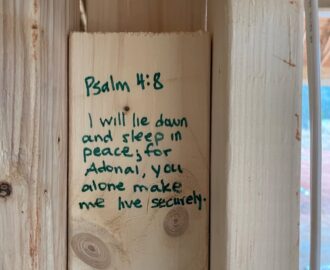 Psalm 4:8
I will lie down
and sleep in
peace; for
Adonai, you
alone make
me live securely.